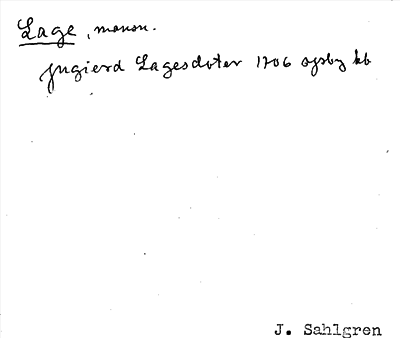 Lage, mansn.
Jngierd Lagesdoter 1706 Opsby kb
J. Sahlgren